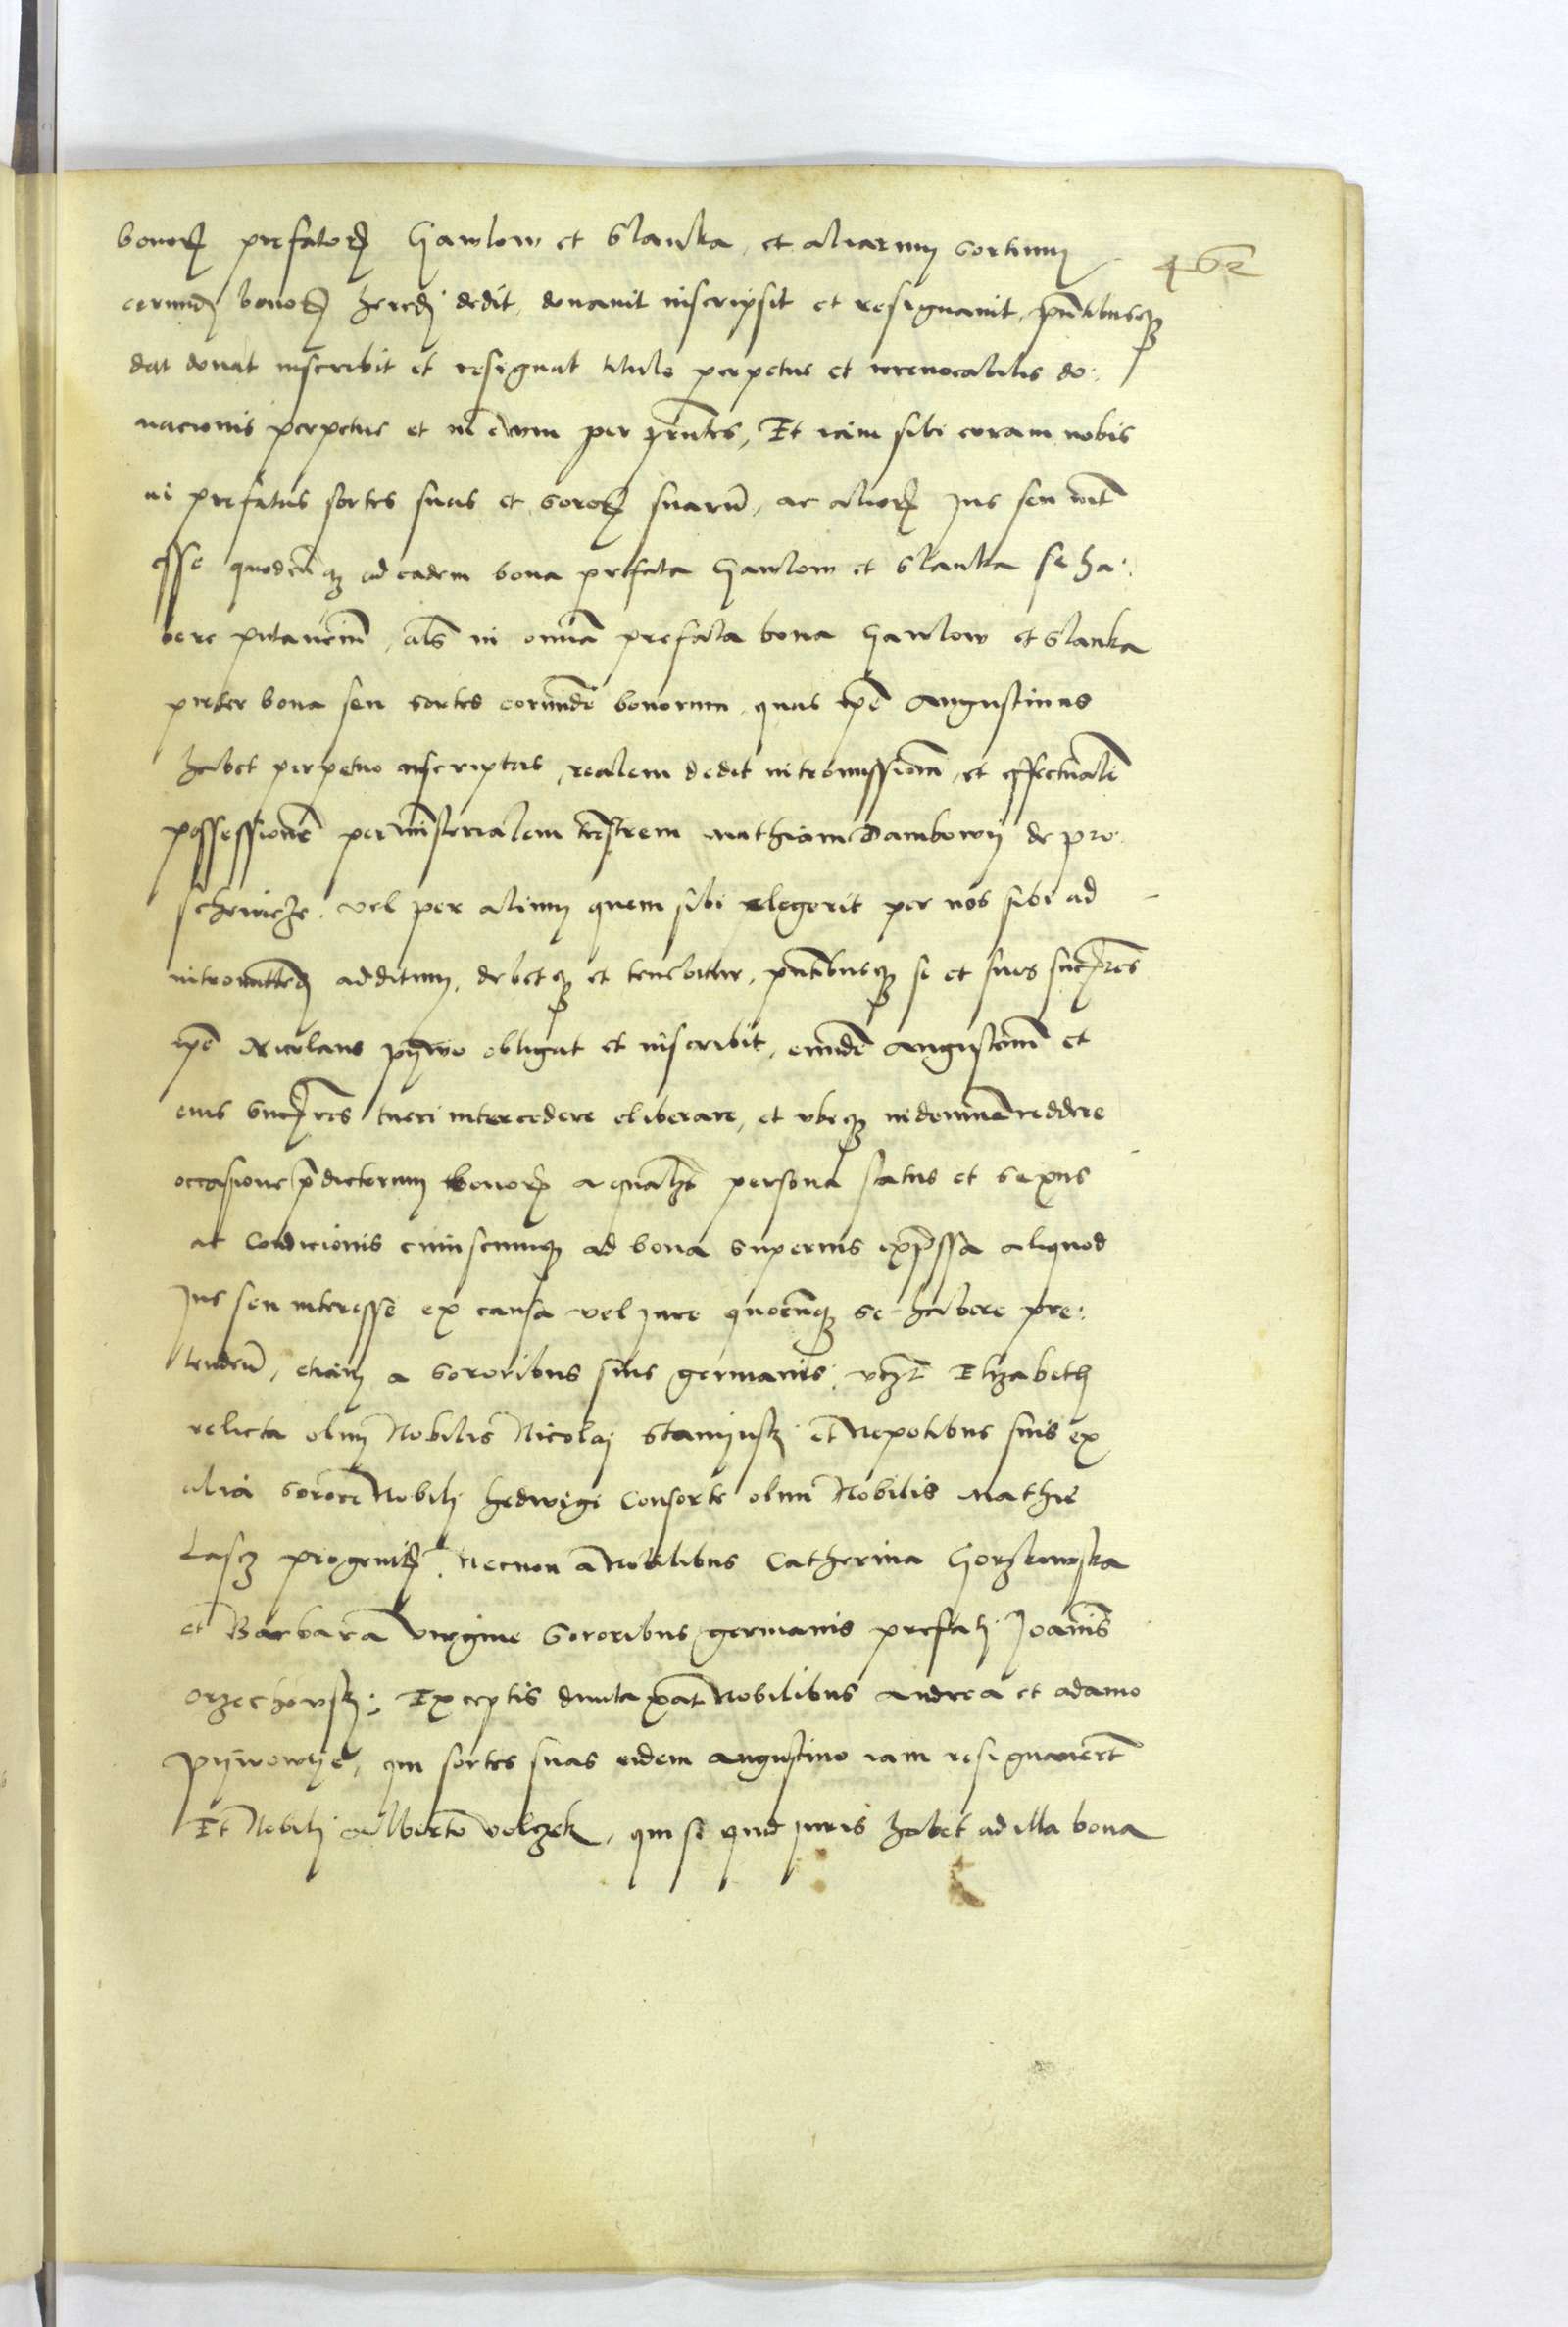 bonorꝫ prefatorꝫ Gawlow et Slanka, et aliarum sortium
462
eorundꝫ bonorꝫ heredꝫ dedit, donauit inscripsit et resignauit, pntibusqꝫ
dat donat inscribit et resignat titulo perpetue et irreuocabilis do:
nacionis perpetue et in euum per pntes, Et iam sibi coram nobis
in prefatas sortes suas et sororꝫ suarũ, ac aliorꝫ Jus seu int
esse quodcũqꝫ ad eadem bona prefata Gawlow et Slanka se ha:
bere putancium, als in omia prefata bona Gawlow et Slanka
preter bona seu sortes eorundẽ bonorum quas ipẽ Augustinus
habet perpetuo inscriptas, realem dedit intromissionẽ, et effectualẽ
possessionẽ per ministerialem trestrem Mathiam Dambowy de pro:
schowicze, vel per alium quem sibi elegerit per nos sibi ad
intromittendꝫ additum, debetqꝫ et tenebitur, pntibusqꝫ se et suos succres
ipẽ Nicolaus pywo obligat et inscribit, eundẽ Augustinũ et
eius succres tueri intercedere eliberare, et vbiqꝫ indemnẽ reddere
occasione p̃dictorum bonorꝫ a qualibꝫ persona status et sexus
ac Condicionis cuiuscumqꝫ ad bona superius exp̃ssa aliquod
Jus seu interesse ex causa vel Jure quocũqꝫ se habere pre:
tendeñ, etiam a sororibus suis germanis, vcꝫt Elizabeth
relicta olim Nobilis Nicolaj Stanijusky et Nepotibus suis ex
alia sorore Nobilj hedwigi Consorte olim Nobilis Mathie
Lascꝫ progenitꝫ, Necnon a Nobilibus Catherina Gorzkowska
et Barbara virgine Sororibus germanis prefatj Joannis
Orzechowsky: Exceptis dumtaxat Nobilibus Andrea et adamo
pywowye, qui sortes suas eidem Augustino iam resignauerũt
Et Nobilj Alberto volczek, qui si quid juris habet ad illa bona